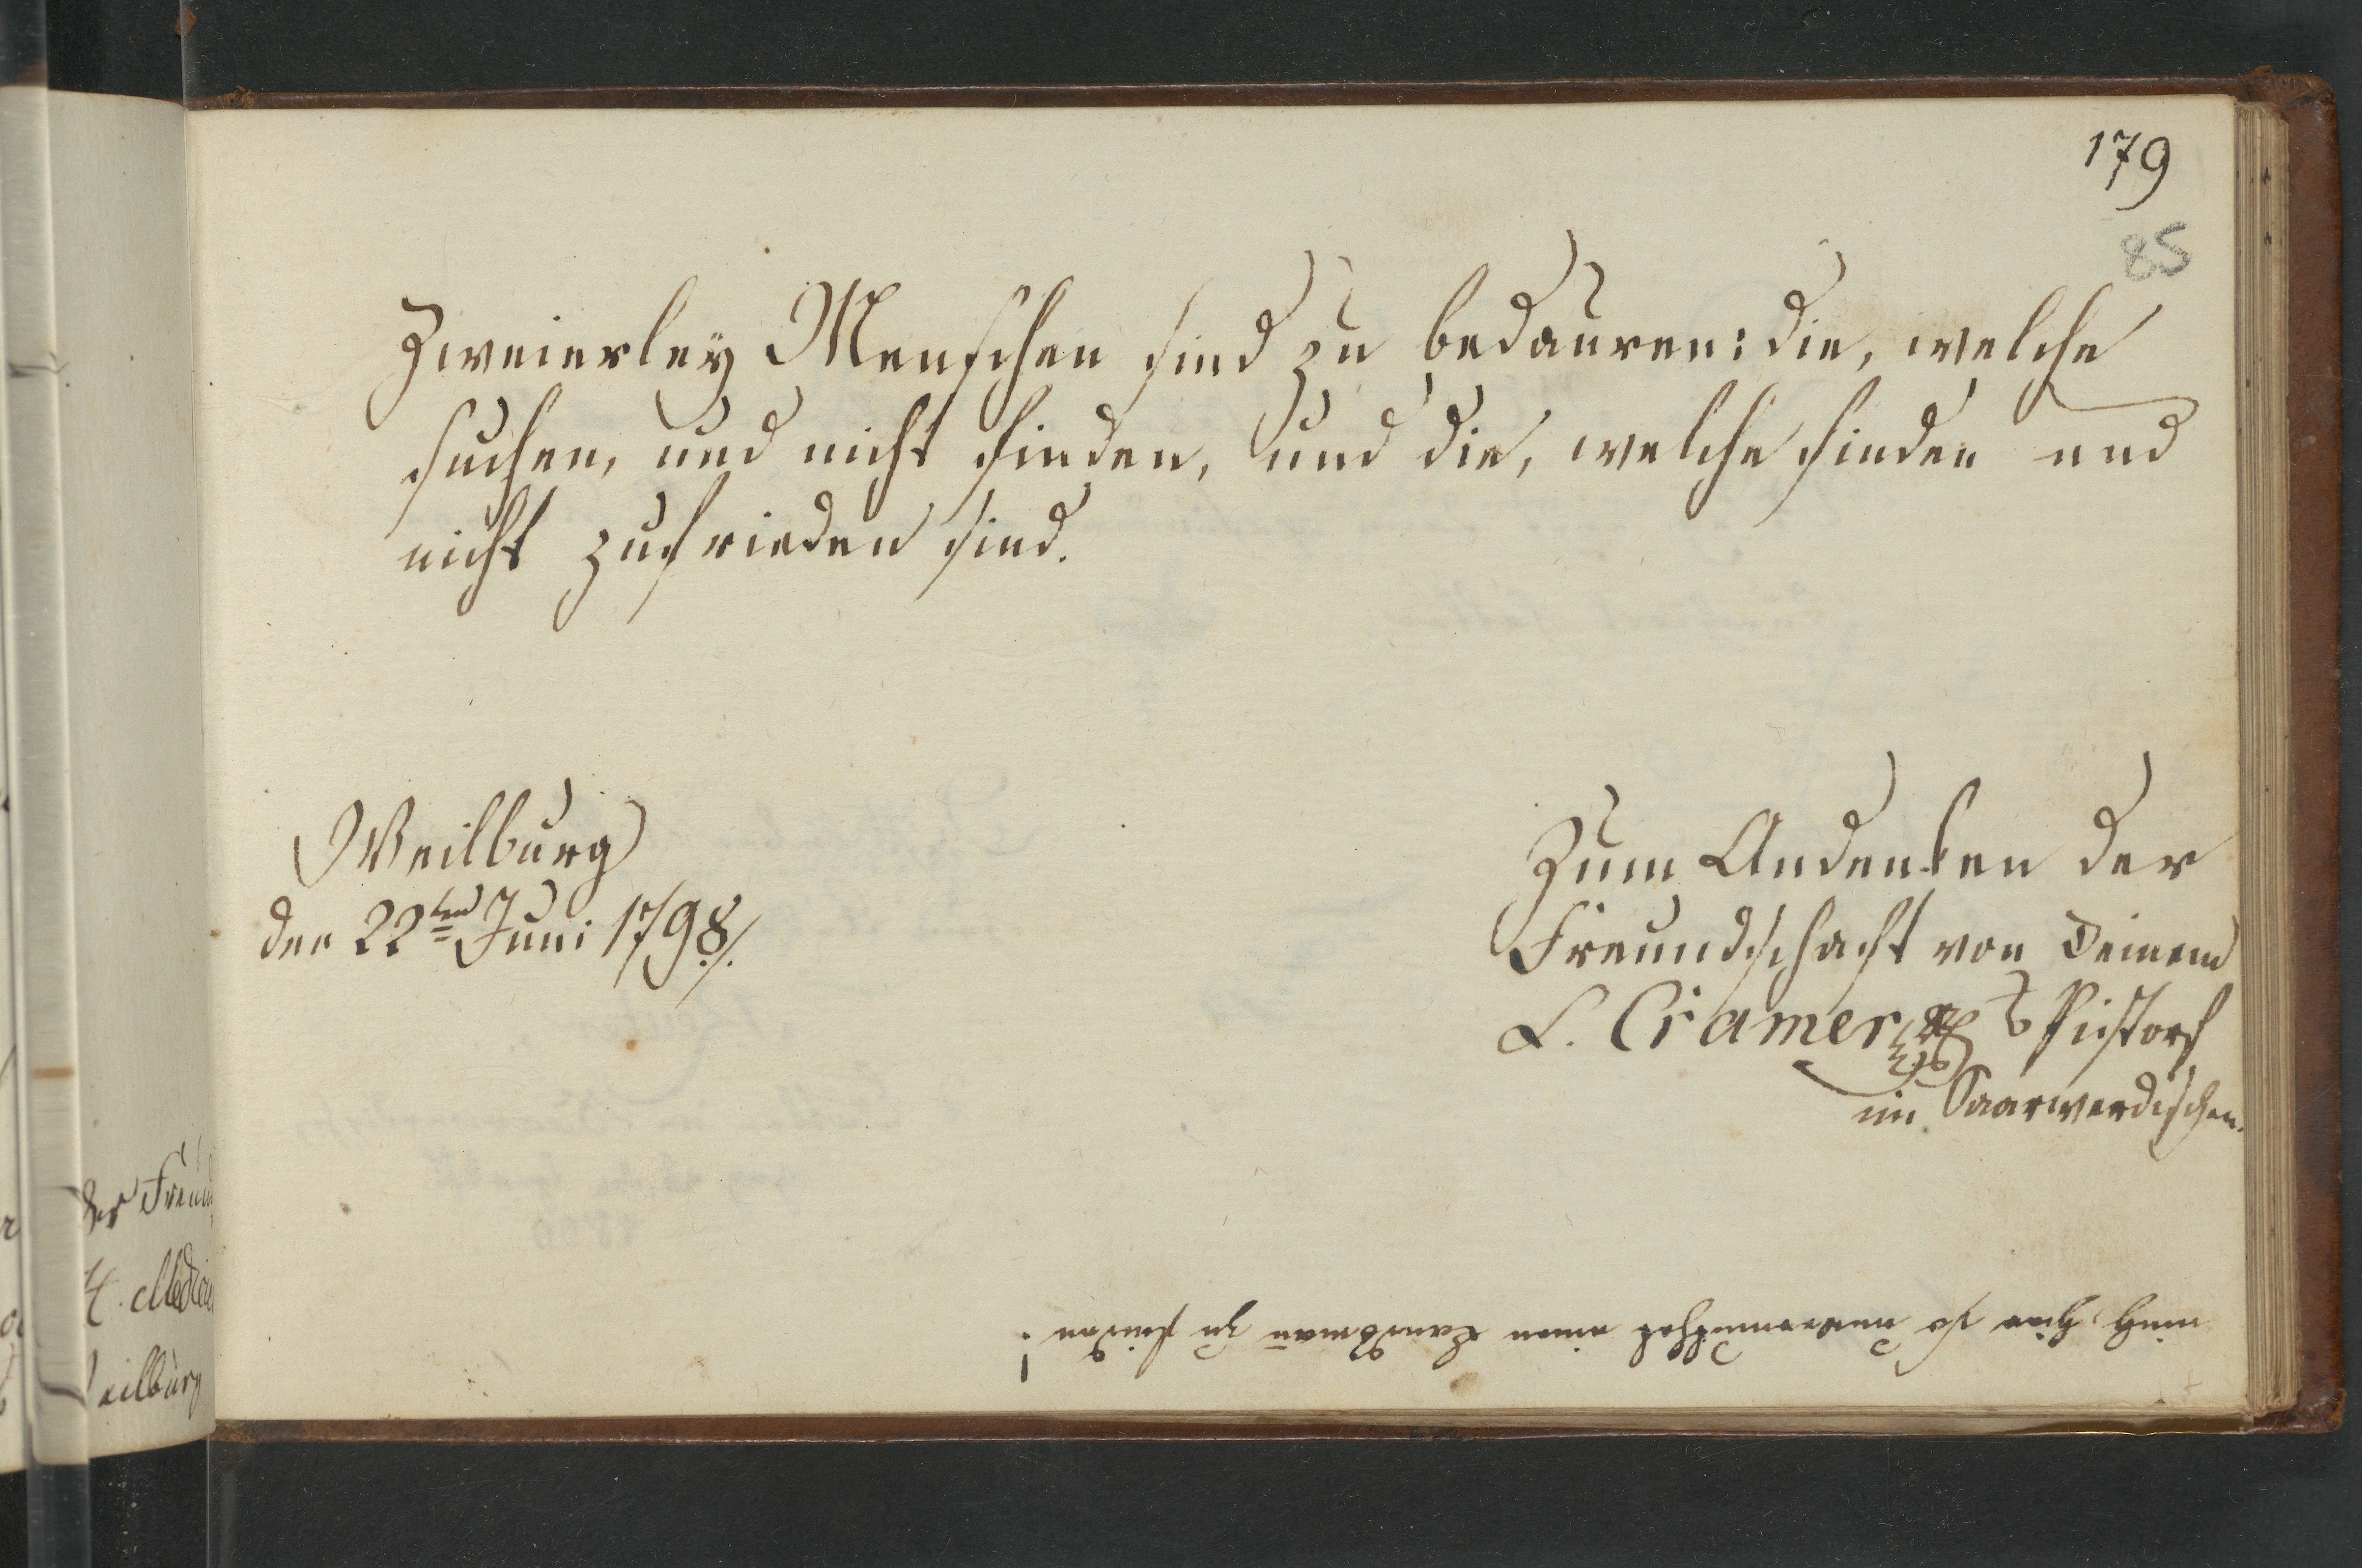 179
85
Zweierley Menschen sind zu bedauren: die, welche
suchen, und nicht finden, und die, welche finden und
nicht zufrieden sind.
Weilburg
den 22ten Juni 1798./.
Zum Andenken der
Freundschaft von Deinem
L. Cramer
im Saarwerdischen.
mich hier so unvermuthet einen Landsman̄ zu finden!
der Freun
H. Medicu
eilburg